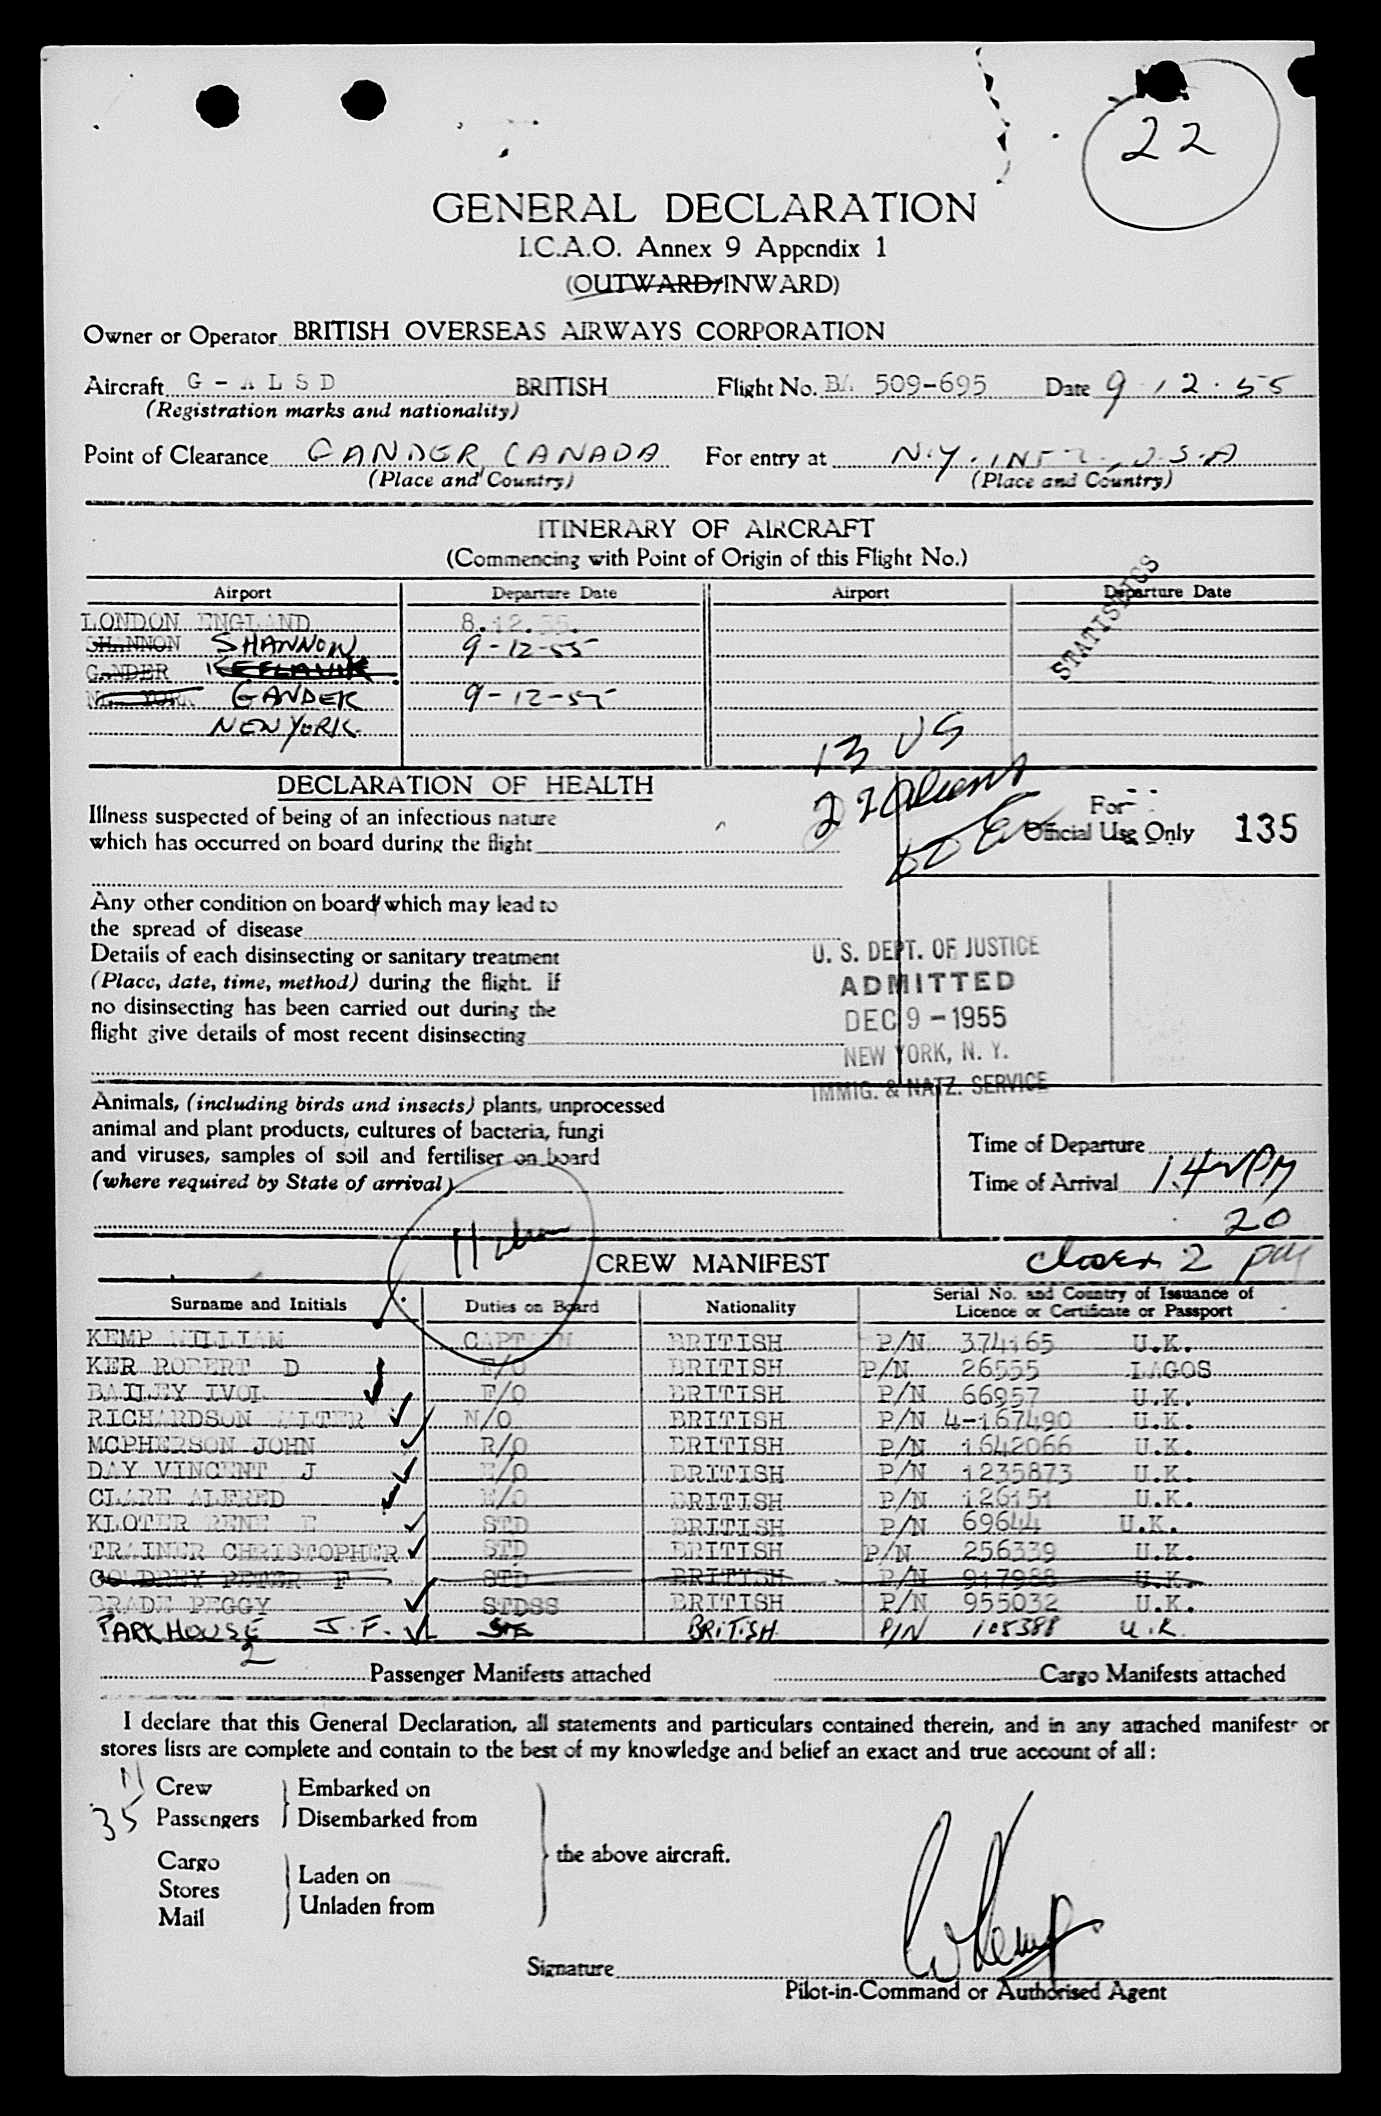 22
GENERAL DECLARATION
I.C.A.O. Annex 9 Appendix 1
(OUTWARD/INWARD)
Owner or Operator BRITISH OVERSEAS AIRWAYS CORPORATION
Aircraft G - A L S D BRITISH Flight No. BA 509-695 Date 9.12.55
(Registration marks and nationality)
Point of Clearance GANDER CANADA For entry at N.Y. INTL, U.S.A
(Place and Country) (Place and Country)
ITINERARY OF AIRCRAFT
(Commencing with Point of Origin of this Flight No.)
Airport Departure Date Airport Departure Date
STATISTICS
LONDON ENGLAND 8.12.55.
SHANNON SHANNON 9-12-55
GANDER KEFLAVIK
NEW YORK GANDER 9-12-55
NEW YORK
13 US
22 Aliens
DECLARATION OF HEALTH
Illness suspected of being of an infectious nature
which has occurred on board during the flight
For
Official Use Only 135
Any other condition on board which may lead to
the spread of disease
Details of each disinsecting or sanitary treatment
(Place, date, time, method) during the flight. If
no disinsecting has been carried out during the
flight give details of most recent disinsecting
U. S. DEPT. OF JUSTICE
ADMITTED
DEC 9 - 1955
NEW YORK, N. Y.
IMMIG. & NATZ. SERVICE
Animals, (including birds and insects) plants, unprocessed
animal and plant products, cultures of bacteria, fungi
and viruses, samples of soil and fertiliser on board
(where required by State of arrival)
Time of Departure
Time of Arrival
20
CREW MANIFEST
2 PM
Surname and Initials Duties on Board Nationality Serial No. and Country of Issuance of
Licence or Certificate or Passport
KEMP WILLIAM CAPTAIN BRITISH P/N 374165 U.K.
KER ROBERT D F/O BRITISH P/N 26555 LAGOS
BAILEY IVOR F/O BRITISH P/N 66957 U.K.
RICHARDSON WALTER N/O BRITISH P/N 4-167490 U.K.
MCPHERSON JOHN R/O BRITISH P/N 1642066 U.K.
DAY VINCENT J E/O BRITISH P/N 1235873 U.K.
CLARE ALFRED E/O BRITISH P/N 126151 U.K.
KLOTER RENE E STD BRITISH P/N 69644 U.K.
TRAINER CHRISTOPHER STD BRITISH P/N 256339 U.K.
GOLDREY PETER F STD BRITISH P/N 917988 U.K.
BRADE PEGGY STDSS BRITISH P/N 955032 U.K.
PARKHOUSE J.F. BRITISH P/N 105388 U.K.
2 Passenger Manifests attached Cargo Manifests attached
I declare that this General Declaration, all statements and particulars contained therein, and in any attached manifests or
stores lists are complete and contain to the best of my knowledge and belief an exact and true account of all:
11 Crew Embarked on
35 Passengers Disembarked from
the above aircraft.
Cargo
Stores
Mail
Laden on
Unladen from
W Kemp
Signature
Pilot-in-Command or Authorised Agent